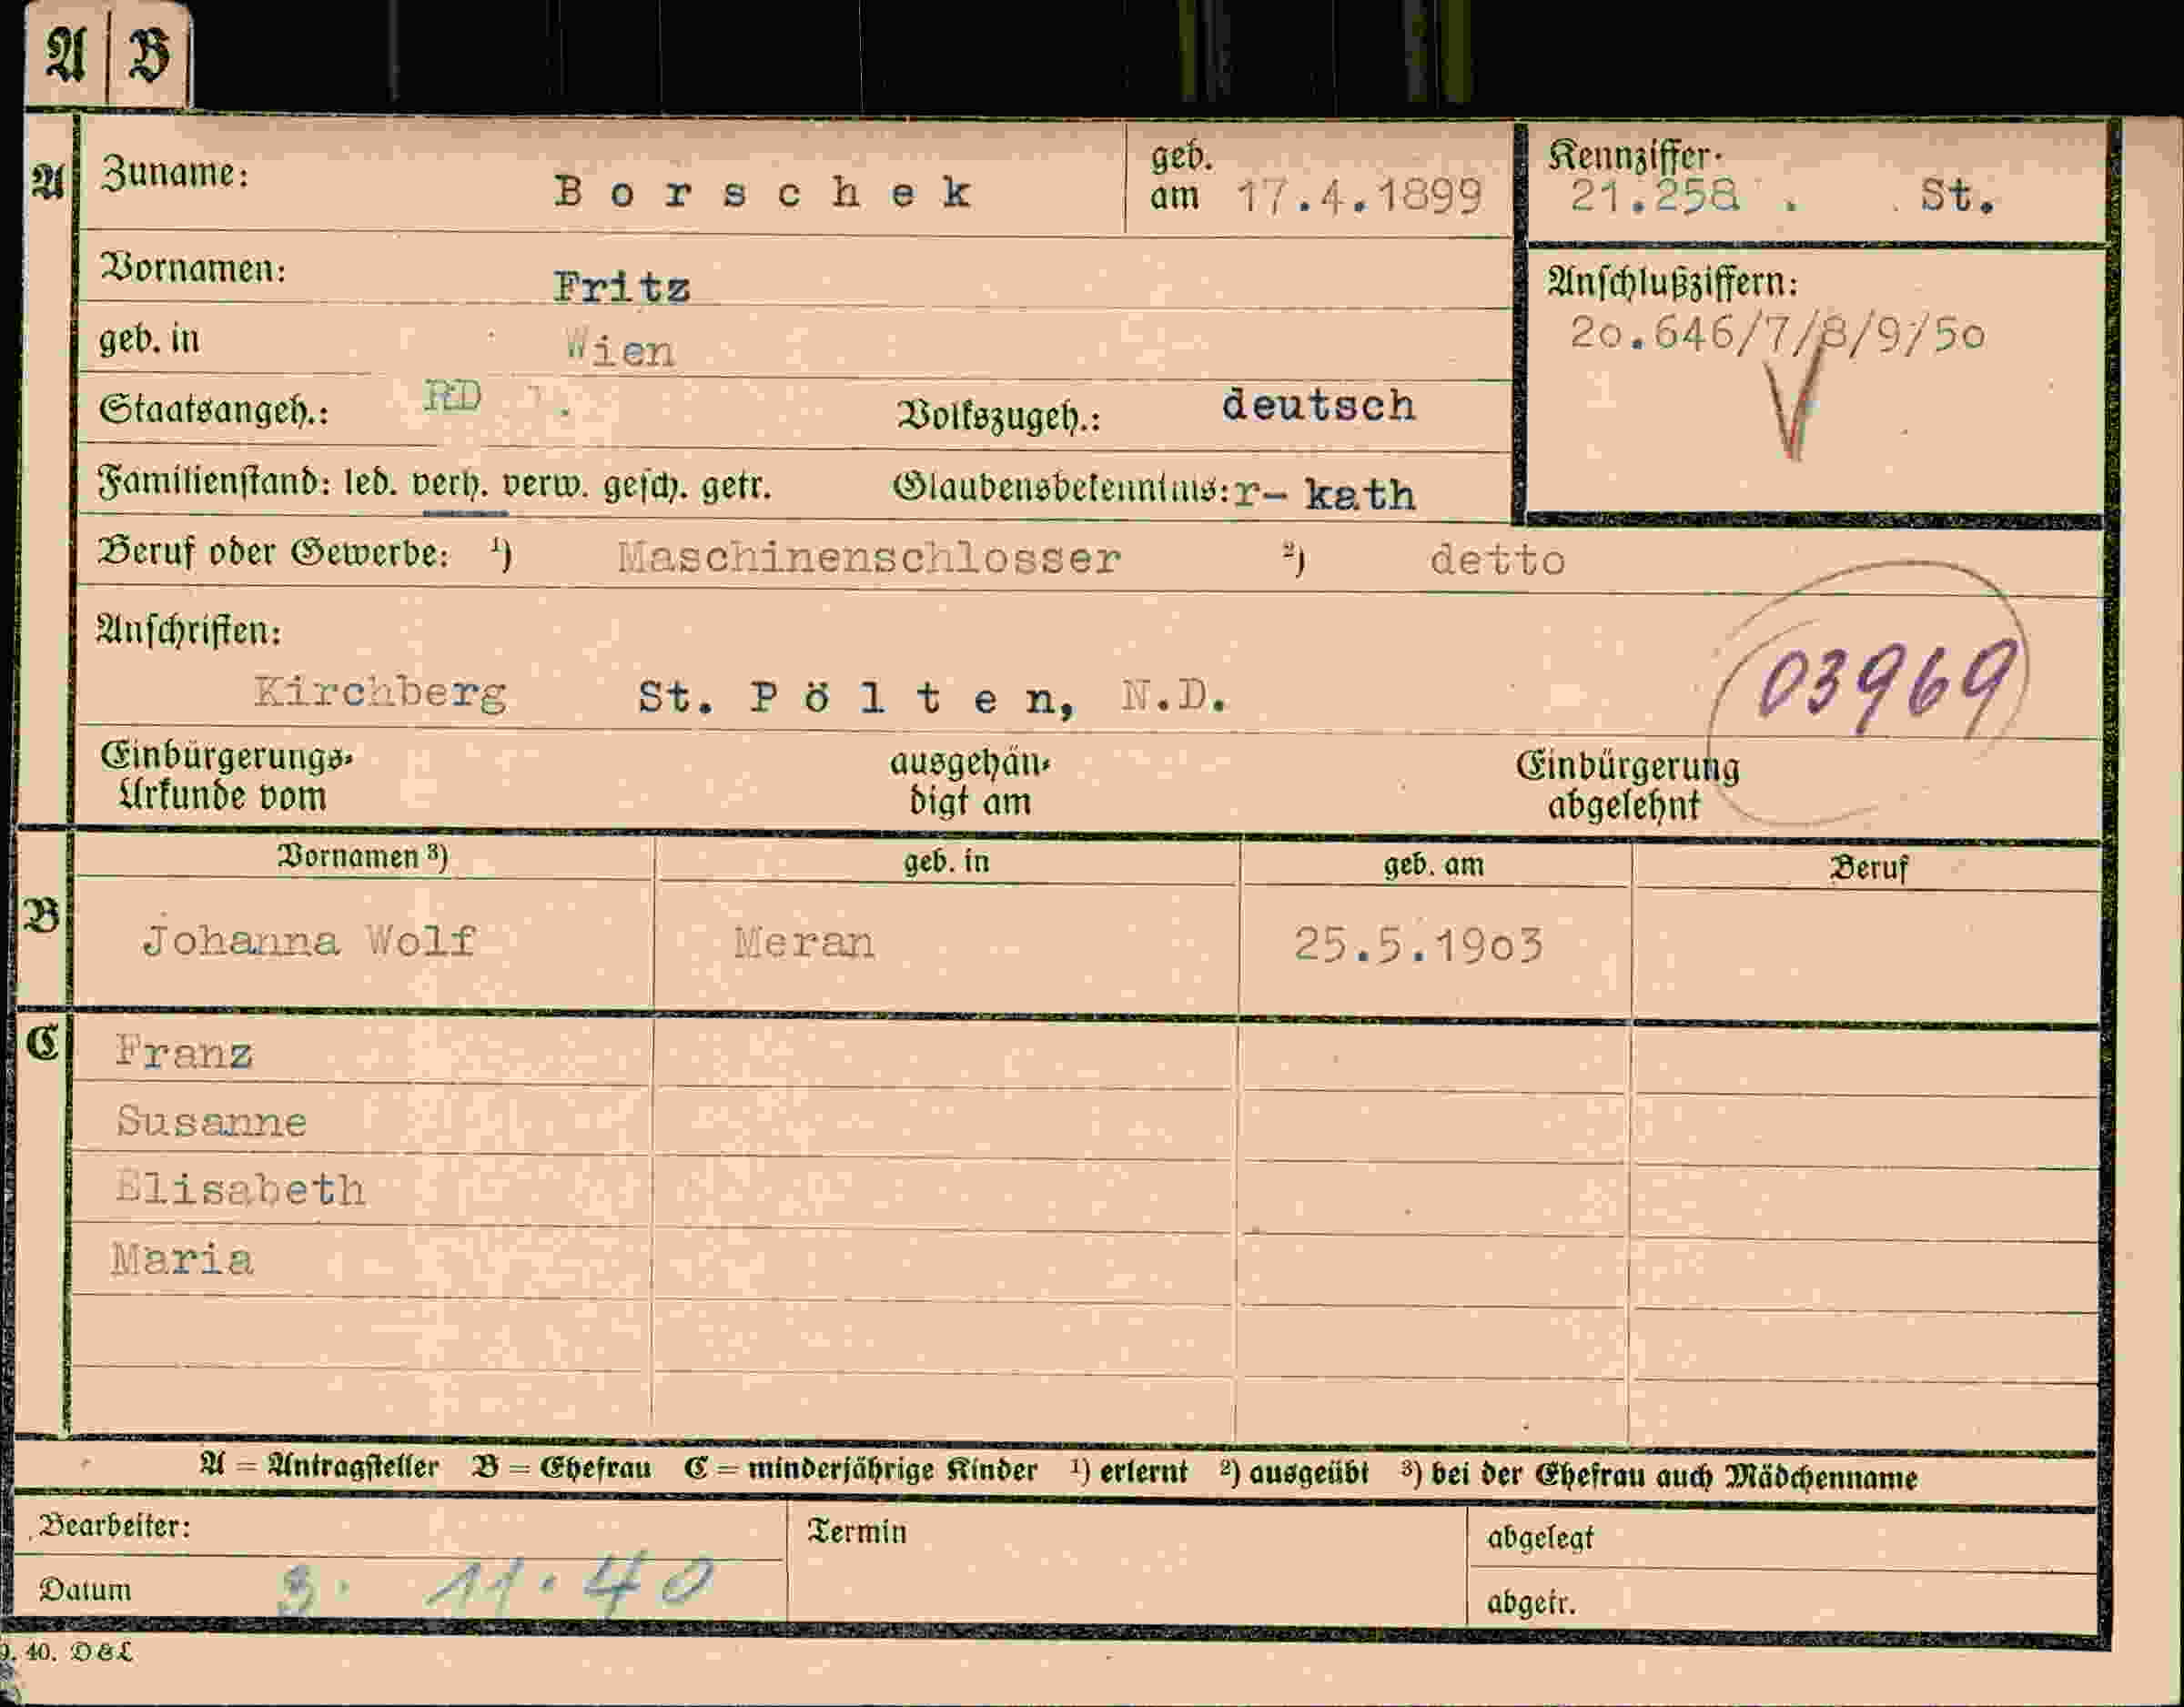 A B
A Zuname: Borschek geb. am 17.4.1899 Kennziffer. 21.258 . St.
Vornamen: Fritz
Anschlußziffern:
geb. in Wien
20.646/7/8/9/50
Staatsangeh.: RD Volkszugeh.: deutsch
Familienstand: led. verh. verw. gesch. getr. Glaubensbekenntnis: r- kath
Beruf oder Gewerbe: 1) Maschinenschlosser 2) detto
Anschriften:
Kirchberg St. Pölten, N.D.
03969
Einbürgerungs-
Urkunde vom
ausgehän-
digt am
Einbürgerung
abgelehnt
Vornamen 3) geb. in geb. am Beruf
B Johanna Wolf Meran 25.5.1903
C Franz
Susanne
Elisabeth
Maria
A = Antragsteller B = Ehefrau C = minderjährige Kinder 1) erlernt 2) ausgeübt 3) bei der Ehefrau auch Mädchenname
Bearbeiter: Termin abgelegt
Datum 3. 11. 40 abgetr.
9. 40. D&L